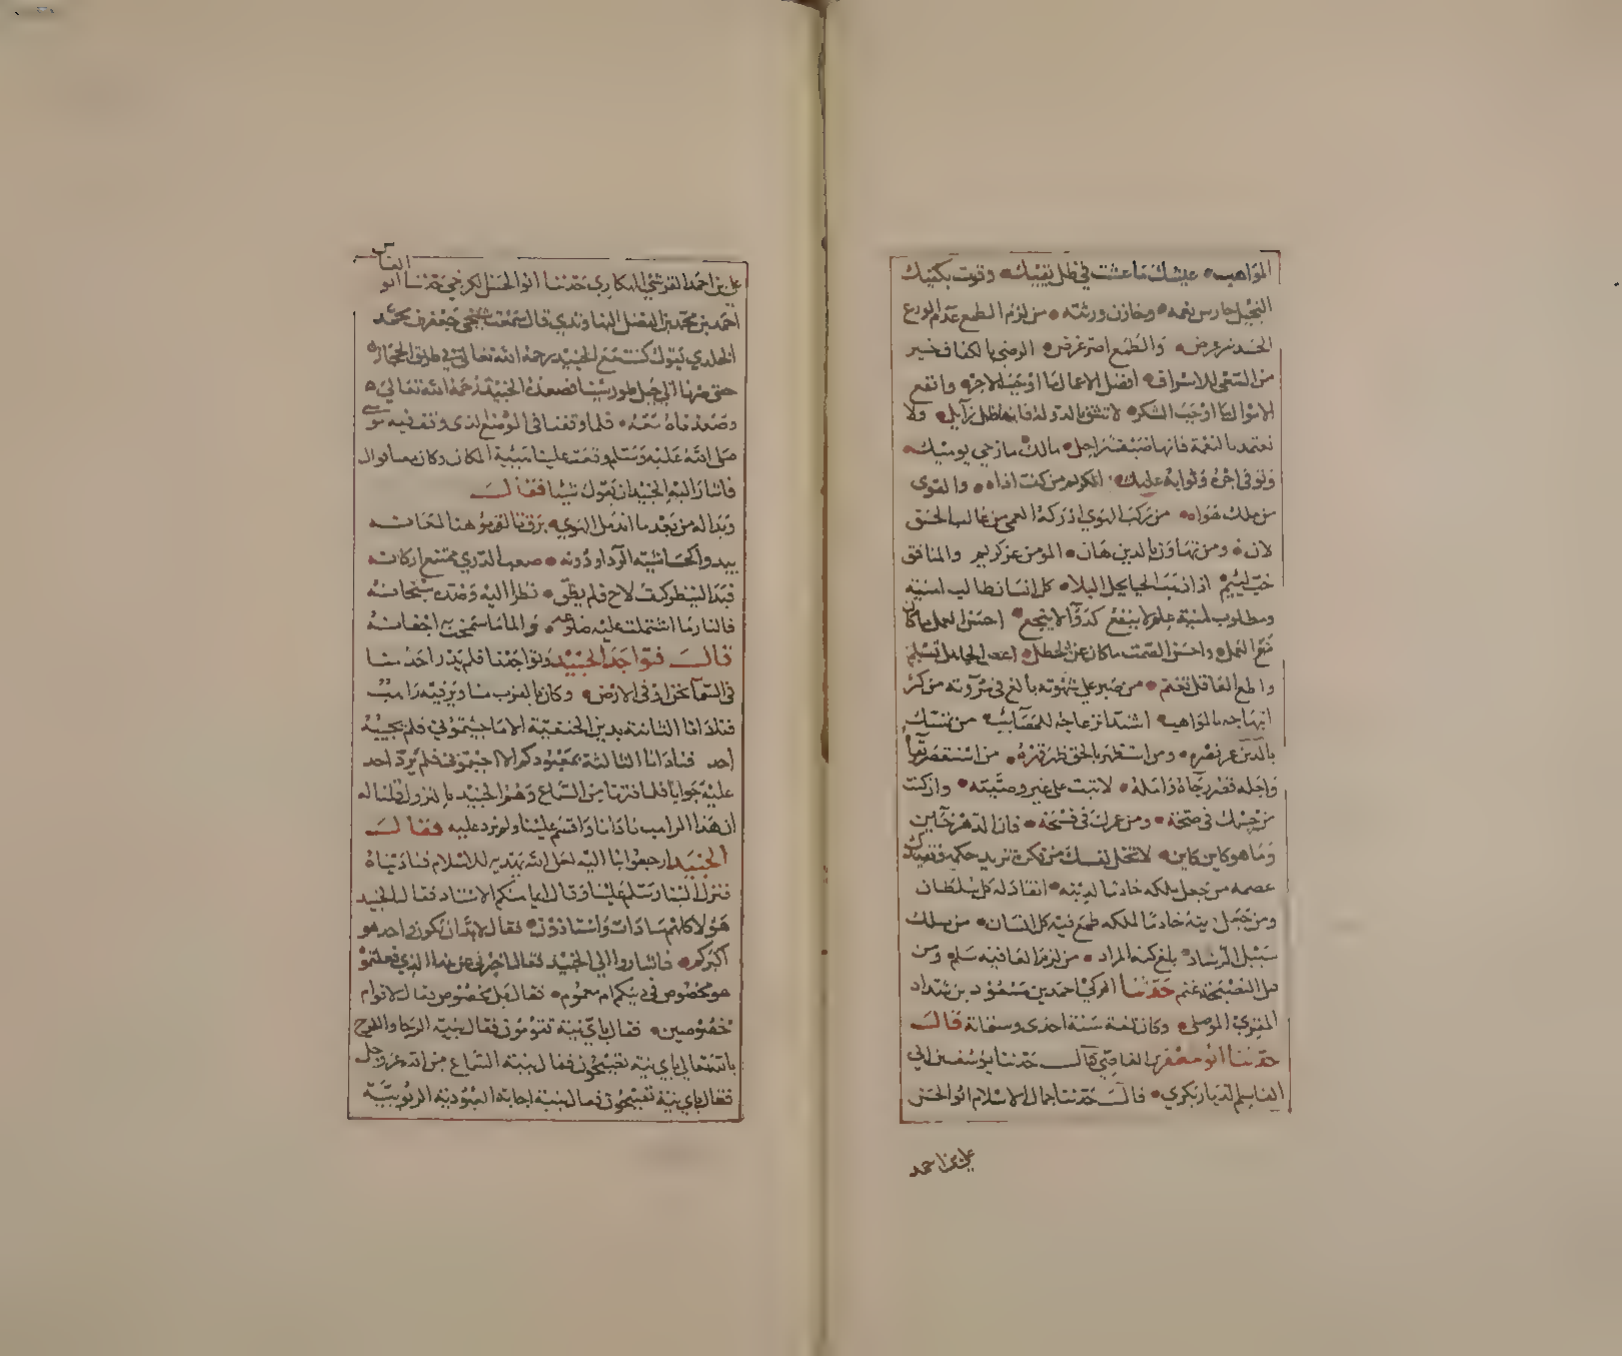 المواهب عيشك ما عشت في ظل يقيك وقوت يكفيك
البخيل حارس نعمه وخازن ورثته من لزم الطمع عدم الورع
الحسد شر عرض والطمع اضر غرض الرضى بالكفاف خير
من السعى للاسراف افضل الاعمال ما اوجب الاجر وانفع
الاموال ما اوجب الشكر لا تثق بالدولة فانها ظل زايل ولا
تعتمد بالنعمة فانها ضيف راحل مالك ما زجي يوميك
وتوفى اجره وثوابه عليك الكريم من كف اذاه والقوى
من ملك هواه من ركب الهوي ادركه العمى من غالب الحق
لان ومن تهاون بالدين هان المومن عز كريم والمنافق
خب لئيم اذا ذهب الحيا حل البلا كل انسان طالب امنية
ومطلوب لمنية علم لا ينفع كدوآ لا ينجع احسن العمل ما كان
مع العمل واحسن الصمت ما كان عن الخطل اعص الجاهل تسلم
واطع العاقل تغنم من صبر على شهوته بالغ في مروته من كثر
ابتهاجه بالمواهب اشتد انزعاجه للمصائب من تمسك
بالدين عز نصره ومن استظهر بالحق ظهر قهره من استقصر بقآه
واجله قصر رجاه وامله لا تبت على غير وصيته وان كنت
من جسمك في صحة ومن عمرك في فسحة فان الدهر خاين
وما هو كاين كاين لا تخل نفسك من فكرة تزيد حكمه وتفيدك
عصمه من جعل ملكه خادما لدينه انقاد له كل سلطان
ومن جعل دينه خادما لملكه طمع فيه كل انسان من سلك
سبيل الرشاد بلغ كنه المراد من لزم العافيه سلم ومن
قبل النصيحة غنم حدثنا الحركي احمد بن مسعود بن شداد
المقري الموصلي وكان لقبه سنة احدى وستمائة قال
حدثنا ابو جعفر بن القاضي قال حدثنا يوسف بن ابي
القاسم الديار بكري قال حدثنا جمال الاسلام ابو الحسن
علي بن احمد
العباس
علي بن احمد القرشي الهكاري حدثنا ابو الحسن الكرخي حدثنا ابو
احمد بن محمد بن الفضل النهاوندي قال سمعت شيخي جعفر بن محمد
الخلدي يقول كنت مع الجنيد رحمه الله تعالى في طريق الحجاز
حتى صرنا الي جبل طور سينا فصعد الجنيد رحمه الله تعالي
وصعدناه معه فلما وقفنا في الموضع الذى وقف فيه موسى
صلى الله عليه وسلم وقعت علينا هيبة المكان وكان معنا قوال
فاشار اليه الجنيد ان يقول شيئا فقال
وبدا له من بعد ما اندمل الهوي برق تالق موهنا لمعانه
يبدو كحاشية الرداودونه صعب الذري متمنع اركانه
فبدا لينظر كيف لاح فلم يطق نظرا اليه وصده سبحانه
فالنار ما اشتملت عليه ضلوعه والما ما سمحت به اجفانه
قال فتواجد الجنيد وتواجدنا فلم يدر احد منا
في السمآ نحن او في الارض وكان بالقرب منا دير فيه راهب
فنادانا الثانية بدين الحنيفية الا ما اجبتموني فلم يجيبه
احد فنادانا الثالثة بمعبودكم الا اجبتموني فلم يرد احد
عليه جوابا فلما فترنا من السماع وهم الجنيد بالنزول قلنا له
ان هذا الراهب نادانا واقسم علينا ولم نرد عليه فقال
الجنيد ارجعوا بنا اليه لعل الله يهديه للاسلام فناديناه
فنزل الينا وسلم علينا وقال ايما منكم الاستاد فقال الجنيد
هؤلا كلهم سادات واستاذون فقال لا بد ان يكون واحد هو
اكبركم فاشاروا الي الجنيد فقال اخبرني عن هذا الذي فعلتموه
هو مخصوص في دينكم ام معموم فقال بل مخصوص فقال لاقوام
مخصوصين فقال باي نية تقومون فقال بنية الرجا والفرح
بالله تعالى باي نية تصيحون فقال بنية السماع من الله عز وجل
فقال باي نية تصيحون فقال بنية اجابة العبودية الربوبية